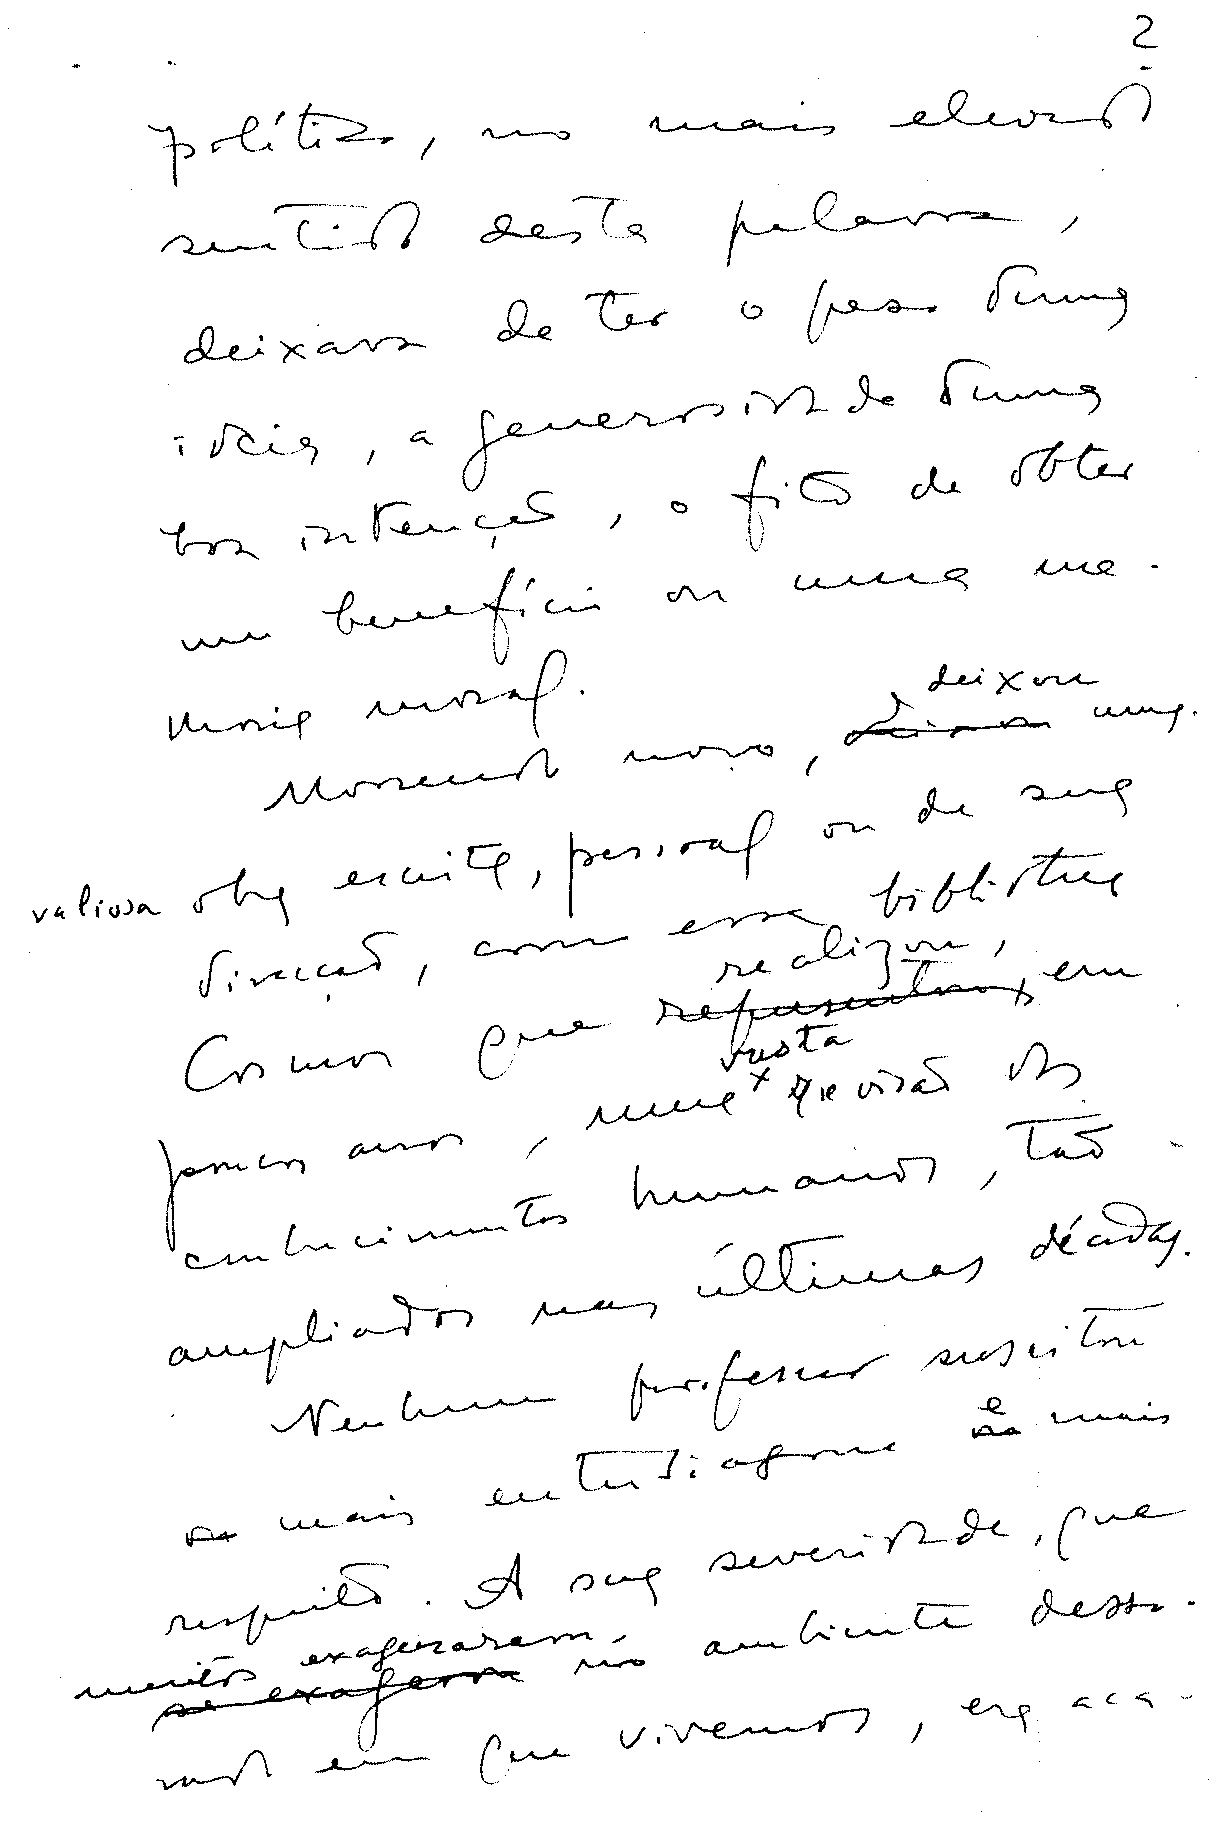 2
política, no mais elevado
sentido desta palavra,
deixava de ter o peso duma
ideia, a generosidade duma
boa intenção, o fito de obter
um benefício ou uma me-
moria moral.
deixou
Morrendo novo, deixava uma
valiosa obra escrita, pessoal ou de sua
direcção, como essa biblioteca
realizou,
Cosmos que representou, em
vasta
poucos anos, uma revisão dos
conhecimentos humanos, tão
ampliados nas últimas décadas.
Nenhum professor suscitou
e
mais entusiasmo ou mais
respeito. A sua severidade, que
muitos exageraram,
se exagerou no ambiente desso-
rado em que vivemos, era aca-